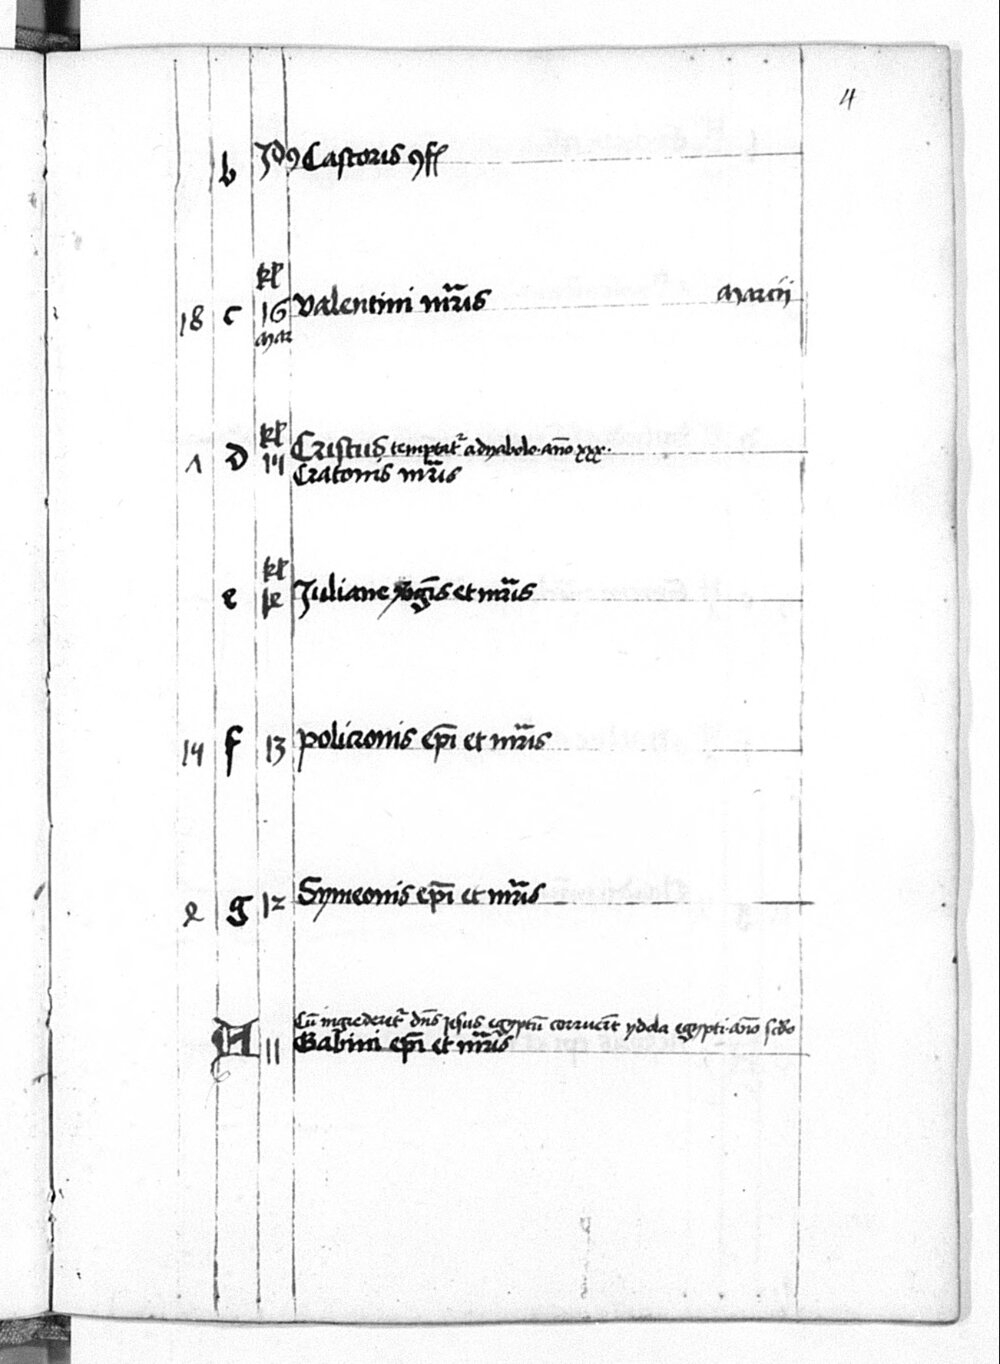 4
b Idꝰ Castoris ꝯff
kl
18 c 16 Valentini mr̄is Marcij
Mar
kl
Cristus temptat᷑ adyabolo · an̄o xxx ·
1 d 14 Cratonis mr̄is
kl
e 1e Juliane v̄gīs et mr̄is
14 f 13 policronis ep̄i et mr̄is
e g 12 Symeonis ep̄i et mr̄is
Cū ingrederet᷑ dn̄s Jesus egyptū corruer̄t ydola egypti · an̄o scd̄o
A 11 Gabini ep̄i et mr̄is